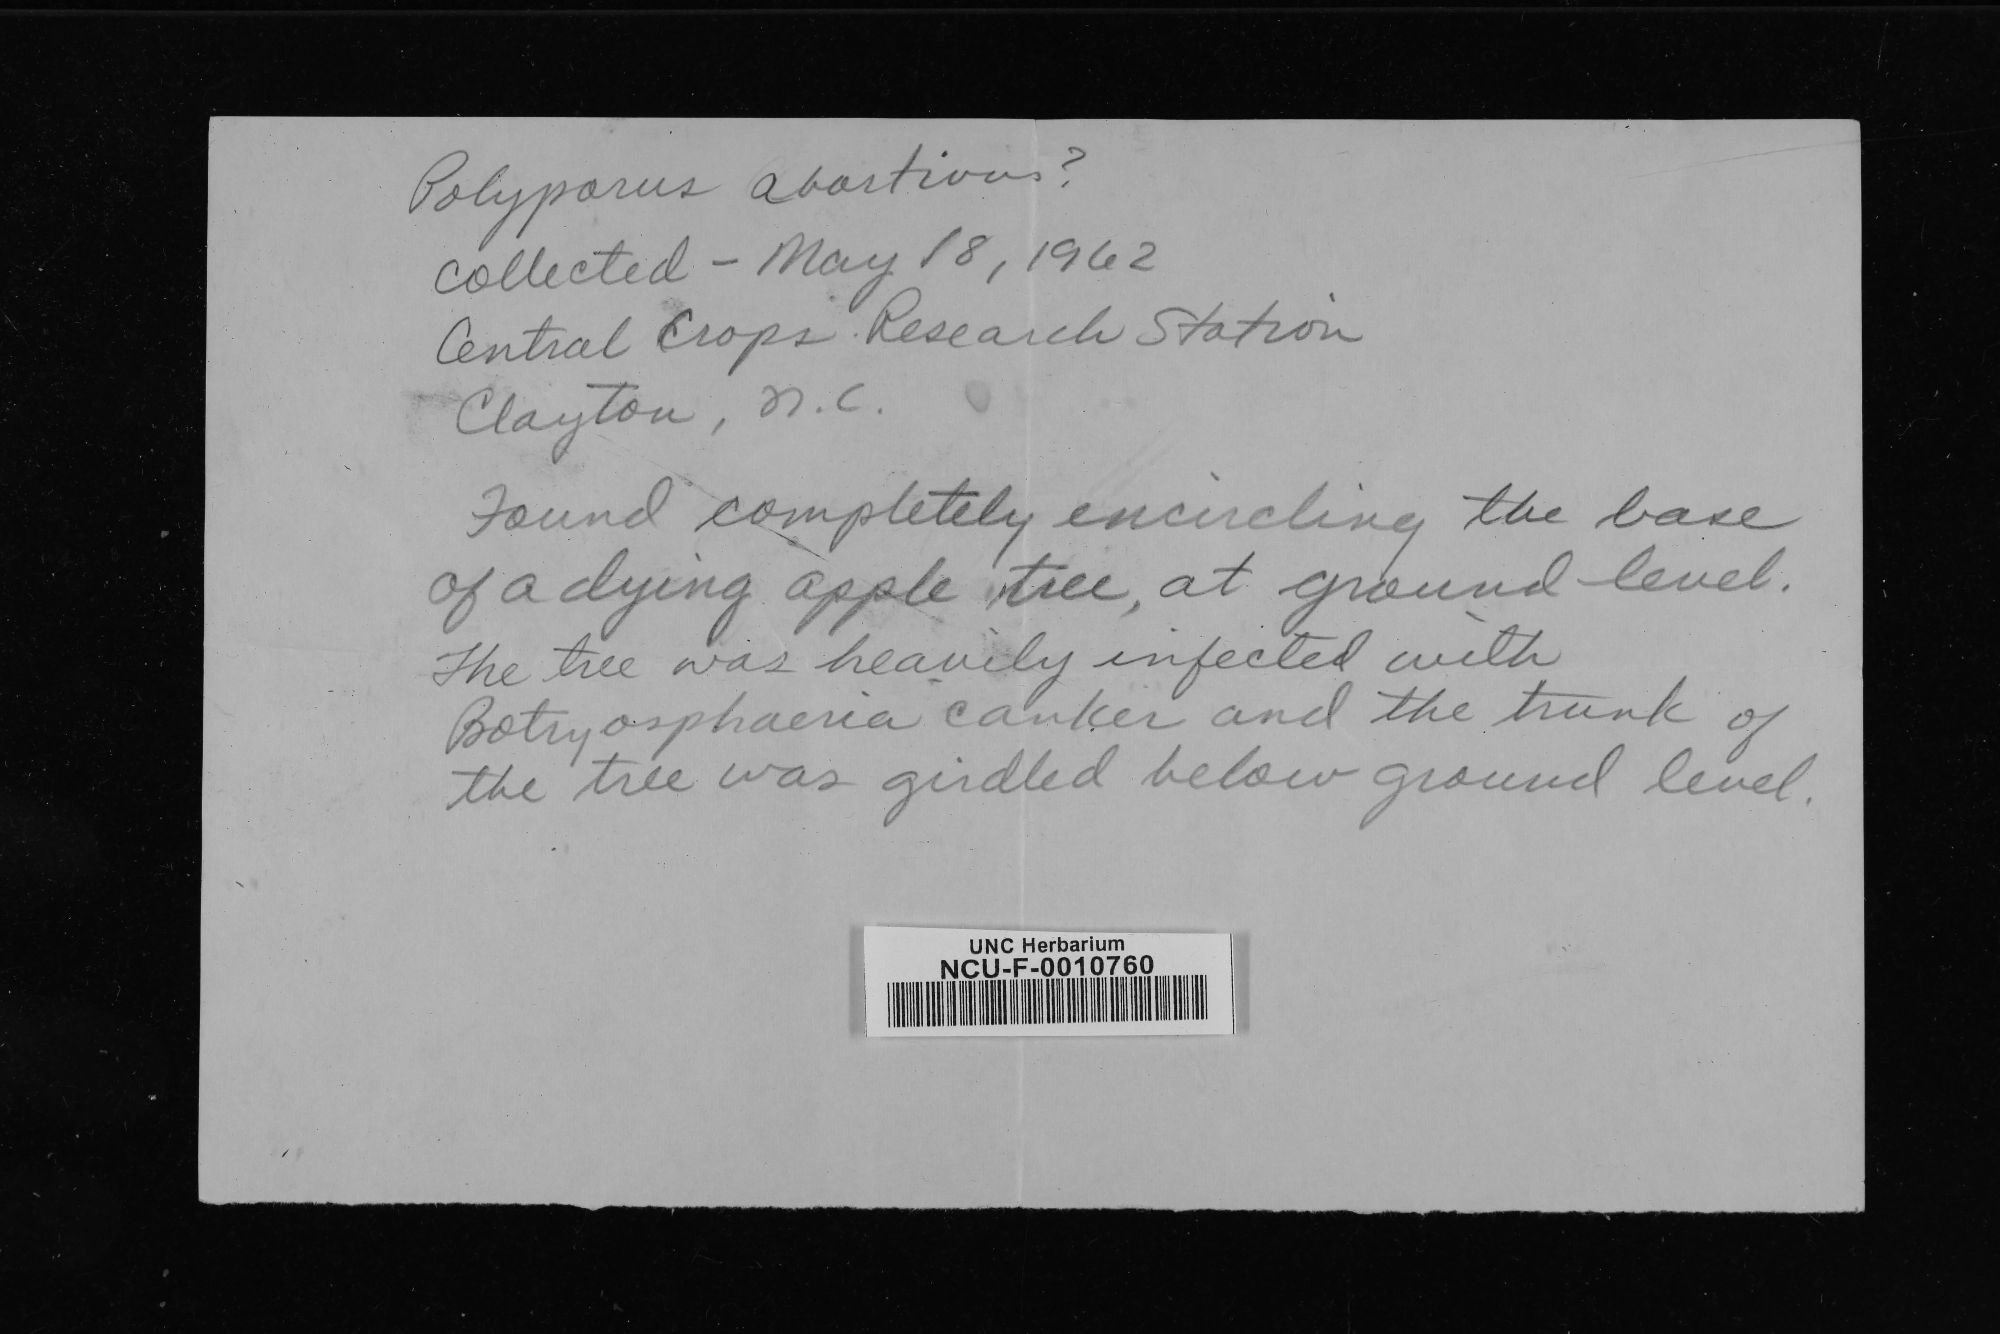 Polyporus abortivus?
collected - May 18, 1962
Central Crops Research Station
Clayton, N.C.
Found completely encircling the base
of a dying apple tree, at ground level.
The tree was heavily infected with
Botryosphaeria canker and the trunk of
the tree was girdled below ground level.
UNC Herbarium
NCU-F-0010760